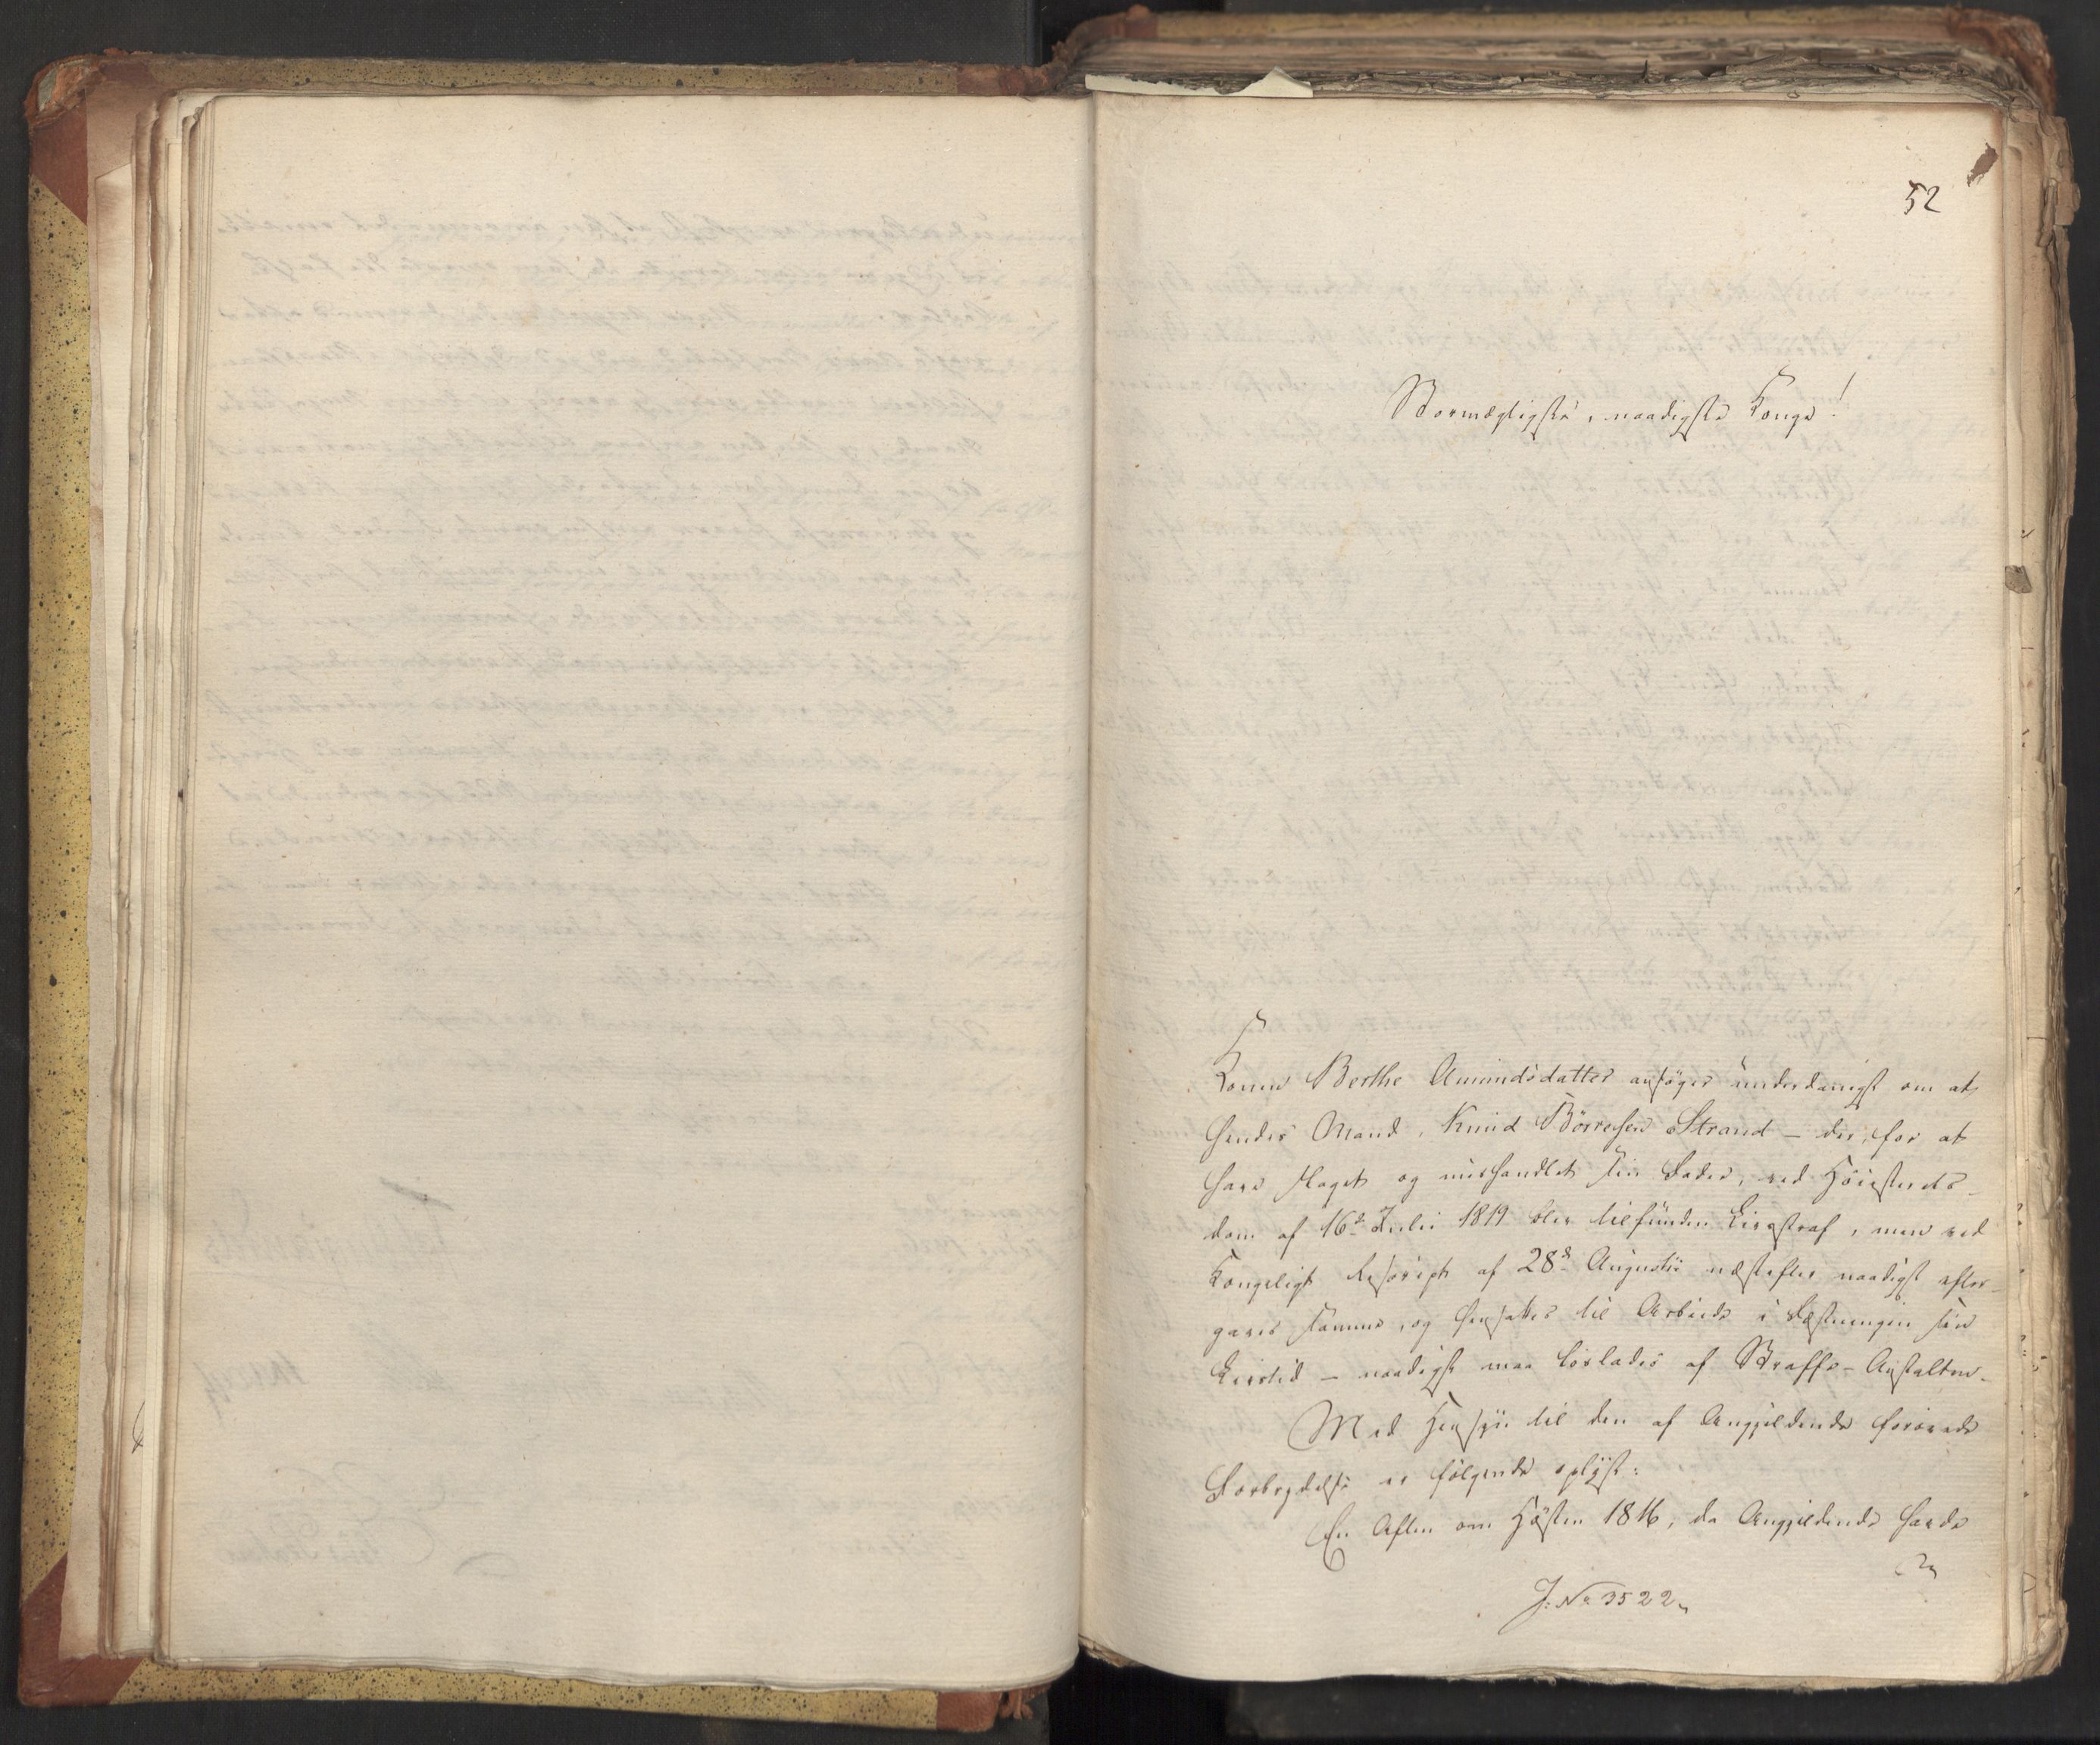 52
Stormægtigste, naadigste Konge!
Konen Berthe Amundsdatter ansøger underdanigst om at
hendes Mand, Knud Børresen Strand – der, for at
have slaget og mishandlet sin Fader, ved Høiesterets-
dom af 16de Julii 1819 blev tilfunden Livsstraf, men ved
Kongeligt Rescript af 28de Augusti næstefter naadigst efter-
gaves samme, og hensattes til Arbeide i Fæstningen sin
Livstid – naadigst maa løslades af Straffe-Anstalten.
Med Hensyn til den af Angjeldende forøvede
Forbrydelse er følgende oplyst:
En Aften om Høsten 1816, da Angjeldende havde
J: No 3522